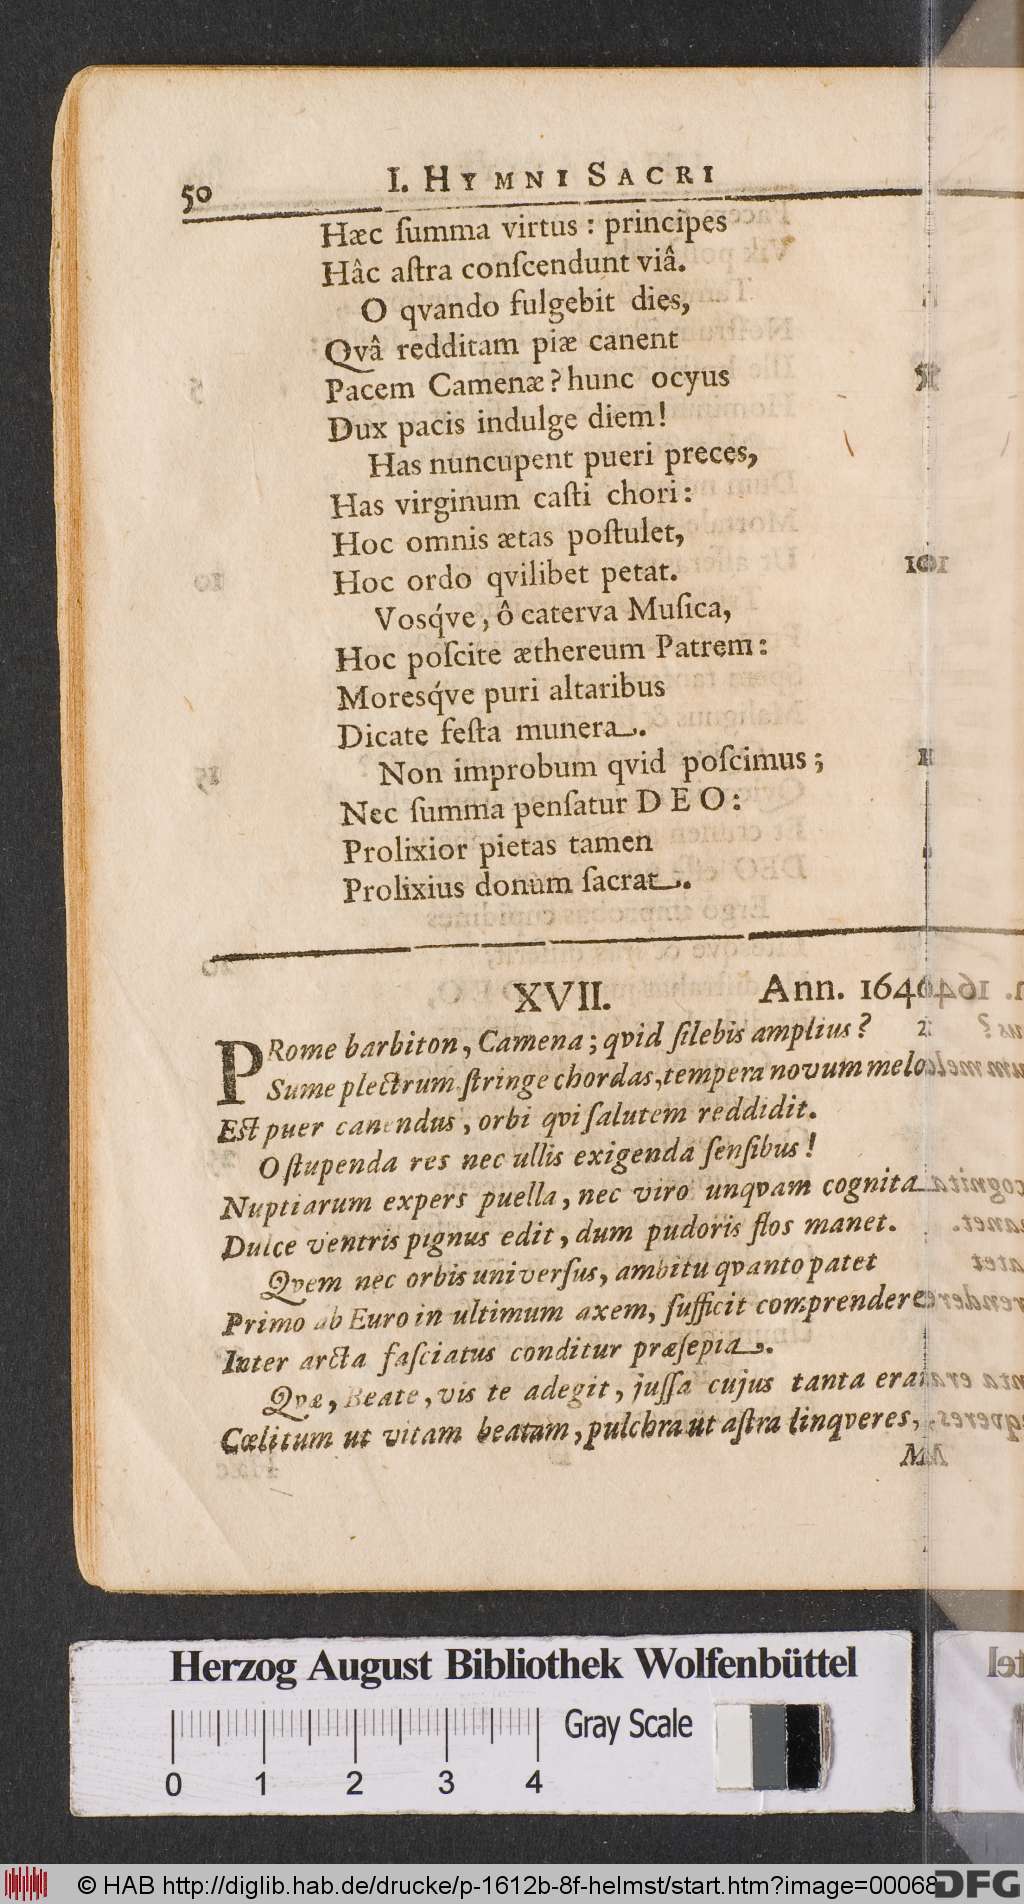 50
I. HYMNI SACRI
Hæc ſumma virtus : principes
Hâc aſtra conſcendunt viâ.
O qvando fulgebit dies,
Qvâ redditam piæ canent
Pacem Camenæ? hunc ocyus
Dux pacis indulge diem!
Has nuncupent pueri preces,
Has virginum caſti chori:
Hoc omnis ætas poſtulet,
Hoc ordo qvilibet petat.
Vosq́ve, ô caterva Muſica,
Hoc poſcite æthereum Patrem:
Moresq́ve puri altaribus
Dicate feſta munera.
Non improbum qvid poſcimus;
Nec ſumma penſatur DEO:
Prolixior pietas tamen
Prolixius donum ſacrat.
XVII. Ann. 1646
PRome barbiton, Camena; qvid ſilebis amplius?
Sume plectrum, ſtringe chordas, tempera novum melo
Eſt puer canendus, orbi qvi ſalutem reddidit.
O ſtupenda res nec ullis exigenda ſenſibus!
Nuptiarum expers puella, nec viro unqvam cognita
Dulce ventris pignus edit, dum pudoris flos manet.
Qvem nec orbis univerſus, ambitu qvanto patet
Primo ab Euro in ultimum axem, ſufficit comprendere
Inter arcta faſciatus conditur præſepia.
Qvæ, Beate, vis te adegit, juſſa cujus tanta erat
Cœlitum ut vitam beatam, pulchra ut aſtra linqveres,
Herzog August Bibliothek Wolfenbüttel
Gray Scale
0 1 2 3 4
© HAB http://diglib.hab.de/drucke/p-1612b-8f-helmst/start.htm?image=00068
DFG